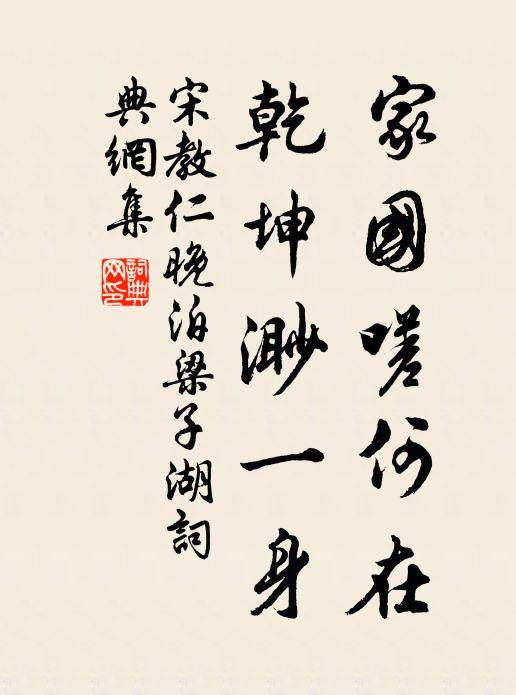 家國嗟何在
乾坤渺一身
宋教仁晚泊梁子湖詞
典網集
詞典
网印